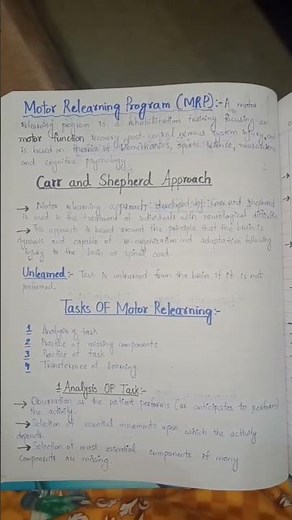 Motor Relearning Program (MRP):- A motor
relearning program is a rehabilitation training focusing on
motor function recovery post central nervous system injury and
is based on theories of biomechanics, sports science, neuroscience
and cognitive psychology.
Carr and Shepherd Approach
→ Motor relearning approach developed by Carr and Shepherd
is used in the treatment of individuals with neurological
→ This approach is based around the principle that the brain is
dynamic and capable of re-organization and adaptation following
injury to the brain or spinal cord.
Unlearned:- Task is unlearned from the brain if it is not
performed.
Tasks OF Motor Relearning:-
1 Analysis of task
2 Practice of missing components
3 Practice of task
4 Transference of learning
1 Analysis OF Task:-
→ Observation as the patient performs (or anticipates to perform)
the activity.
→ Selection of essential movements upon which the activity
depends.
→ Selection of most essential components if many
components are missing.